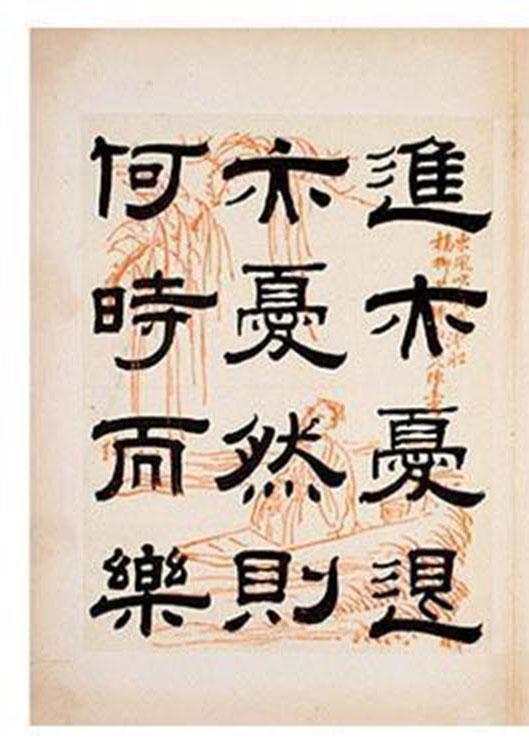 進亦憂退
亦憂然則
何時而樂
東風